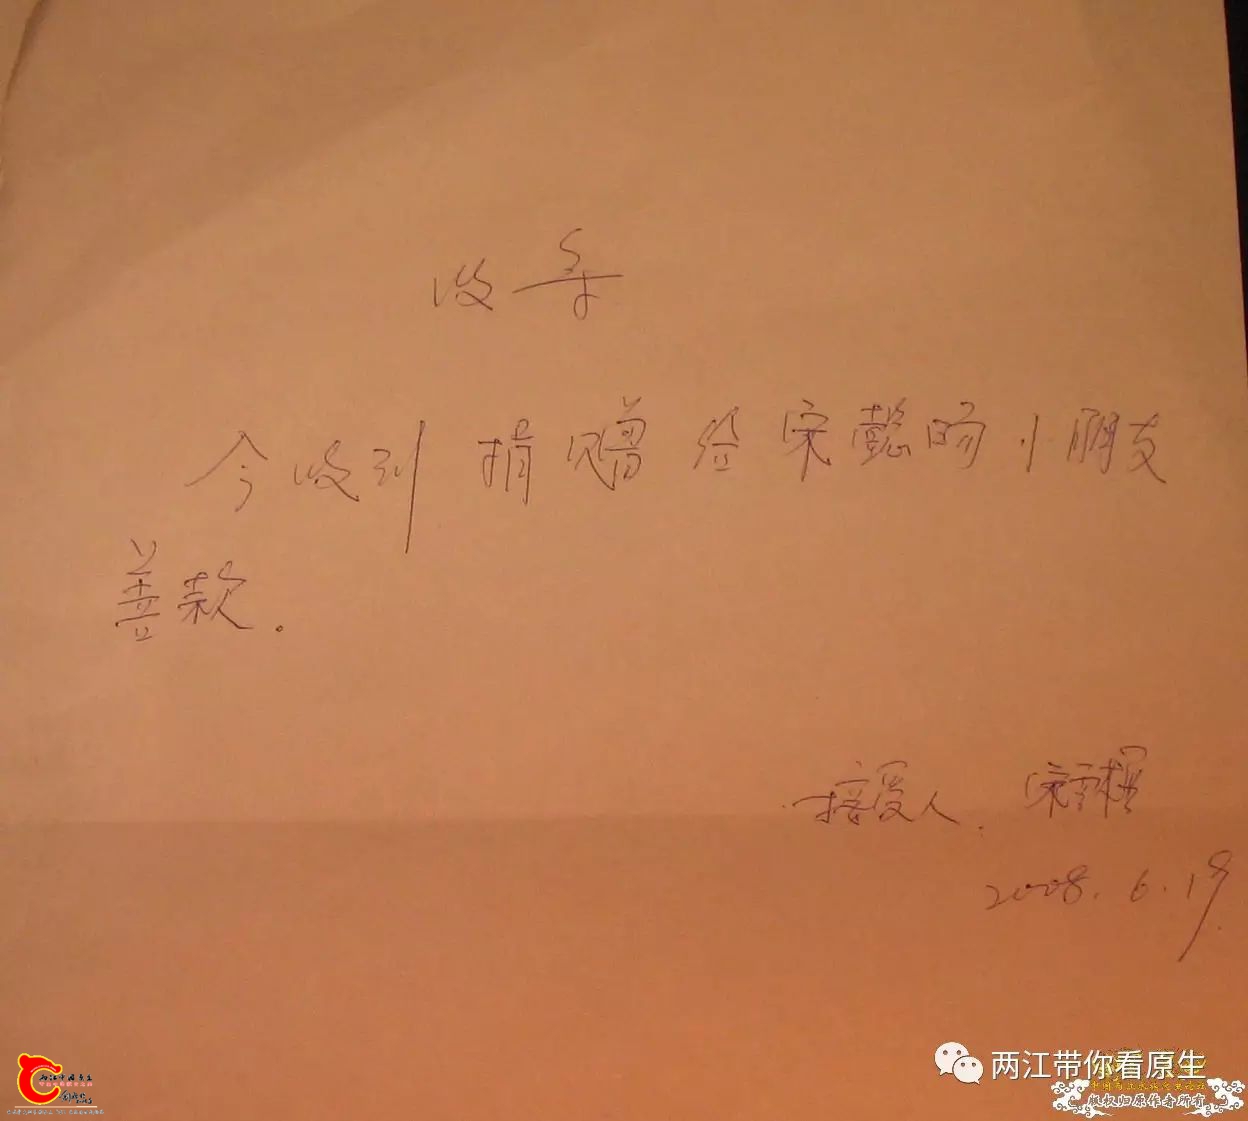 收条
今收到捐赠给宋懿旸小朋友
善款。
接受人. 宋
2008.6.19
两江带你看原生
两江中国原生
版权归原作者所有